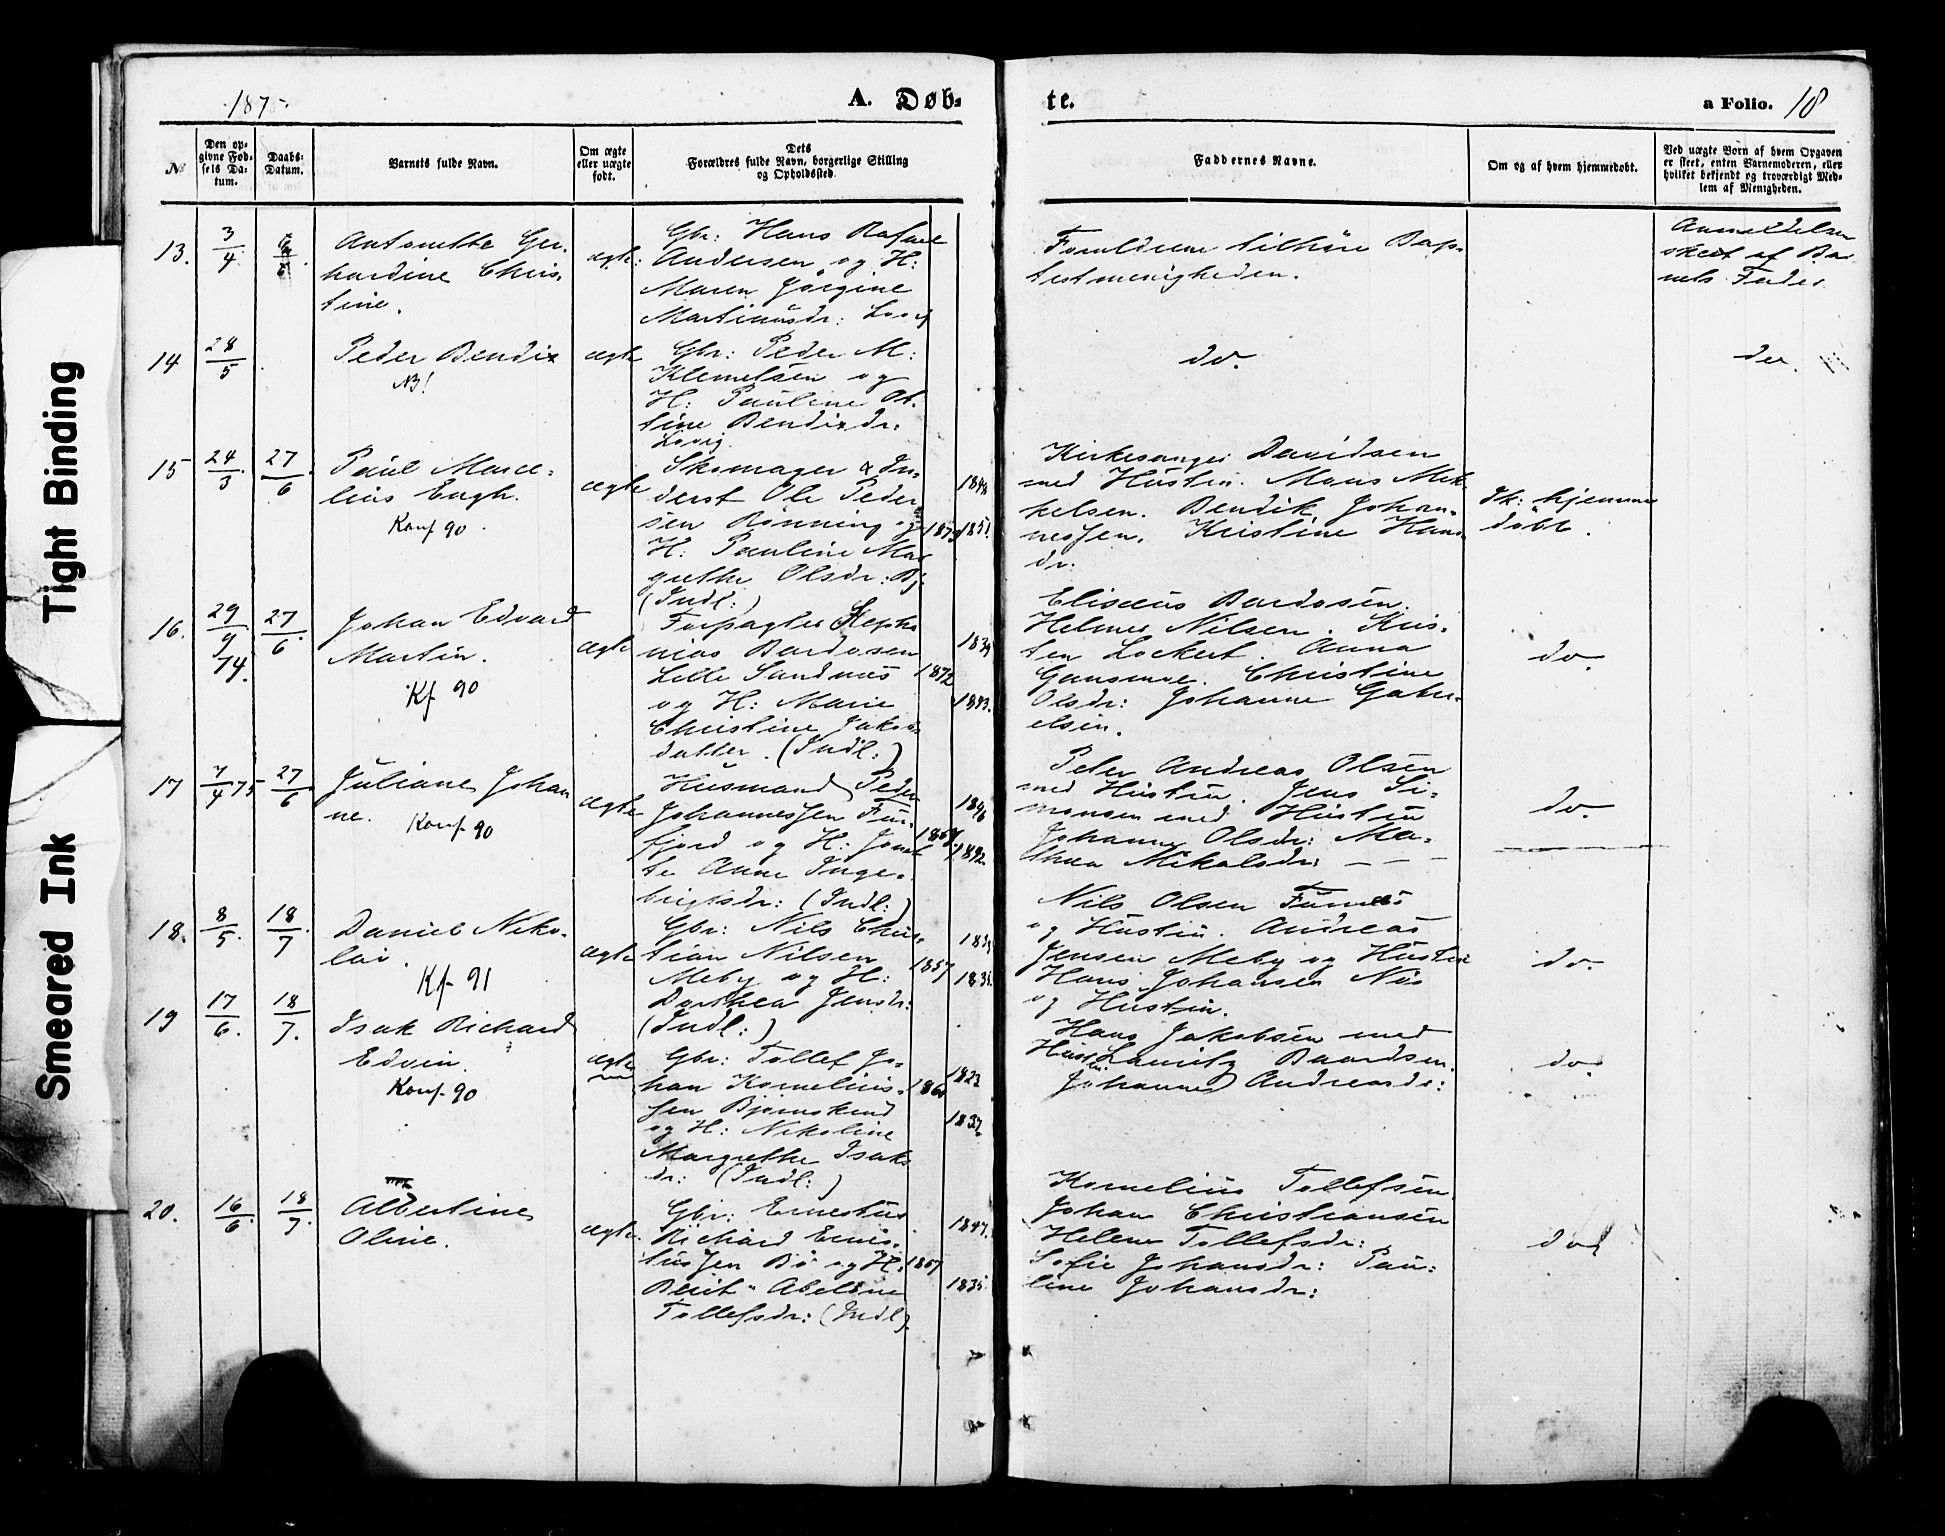 Tight Binding
Smeared Ink
1875.
A. Døb-
te.
a Folio. 18
No
Den op-
givne Fød-
sels Da-
tum.
Daabs-
Datum.
Barnets fulde Navn.
Om ægte
eller uægte
født.
Dets
Forældres fulde Navn, borgerlige Stilling
og Opholdssted.
Faddernes Navne.
Om og af hvem hjemmedøbt.
Ved uægte Børn af hvem Opgaven
er skeet, enten Barnemoderen, eller
hvilket bekjendt og troværdigt Med-
lem af Menigheden.
13.
3/4
Antonette Ger-
hardine Chris-
tine.
ægte:
Gbr: Hans Rafael
Andersen og H:
Maren Jörgine
Martinusdr:
Forældrene tilhöre Bap-
tistmenigheden.
Anmeldelsen
skeet af Bar-
nets Fader
14
28/5
Peder Bendix
NB!
ægte
Gbr: Peder M:
Klemetsen og
H: Pauline Ol-
tine Bendixdr:
do.
do.
15
24/3.
27/6.
Paul Marce-
lius Engh.
Konf 90.
ægte
Skomager & In-
derst Ole Peder-
sen Rönning og
H: Pauline Mar-
grethe Olsdr: Bj:
(Indl:)
1848
1873
1851.
Kirkesanger Davidsen
med Hustru. Mons Mik-
kelsen. Bendik Johan-
nessen. Kristine Hans-
dr:
Ik: hjemme
döbt.
16.
29/9
74.
27/6
Johan Edvard
Martin.
Kf 90
ægte
Forpagter Zepha-
nias Bardosen
Lille Sandnes
og H: Marie
Christine Jakobs-
datter. (Indl:)
1839
1872
1843.
Eliseus Bardosen.
Helmer Nilsen. Kris-
ten Lockert. Anna
Christine
Olsdr: Johanne Gabri-
elsen.
do.
17
7/4 75
27/6.
Juliane Johan
ne.
Konf 90
ægte
Husmand Peder
Johannessen Fur-
fjord og H: Jonet-
te Anne Inge-
brigtsdr: (Indl:)
1846
1842.
Peter Andreas Olsen
med Hustru. Jens Si-
monsen med Hustru
Johanne Olsdr: Ma-
thea Mikalsdr: — — —
do.
18.
8/5.
18/7.
Daniel Niko-
lai.
Kf 91
ægte
Gbr: Nils Chris-
tian Nilsen
Meby og H:
Dorthea Jensdr:
(Indl:)
1857
Nils Olsen Furnes
og Hustru. Andreas
Jensen Meby og Hustru
Hans Johansen Nös
og Hustru.
do.
19
17/6.
18/7.
Isak Richard
Edvin.
Konf 90
ægte
Gbr: Tollef Jo-
han Kornelius-
sen Björnskind
og H: Nikoline
Margrethe Isaks-
dr: (Indl:)
1823
1837.
Hans Jakobsen med
Hustru. Lauritz Baardsen.
Johanne Andreasdr:
do.
20.
16/6.
18/7.
Albertine
Oline.
ægte.
Gbr: Ernestus
Richard Ernes-
tussen Bö og H:
Berit Abelone
Tollefsdr: (Indl).
1867
1835
Kornelius Tollefsen
Johan Christiansen
Helene Tollefsdr:
Sofie Johansdr: Pau-
line Johansdr:
do